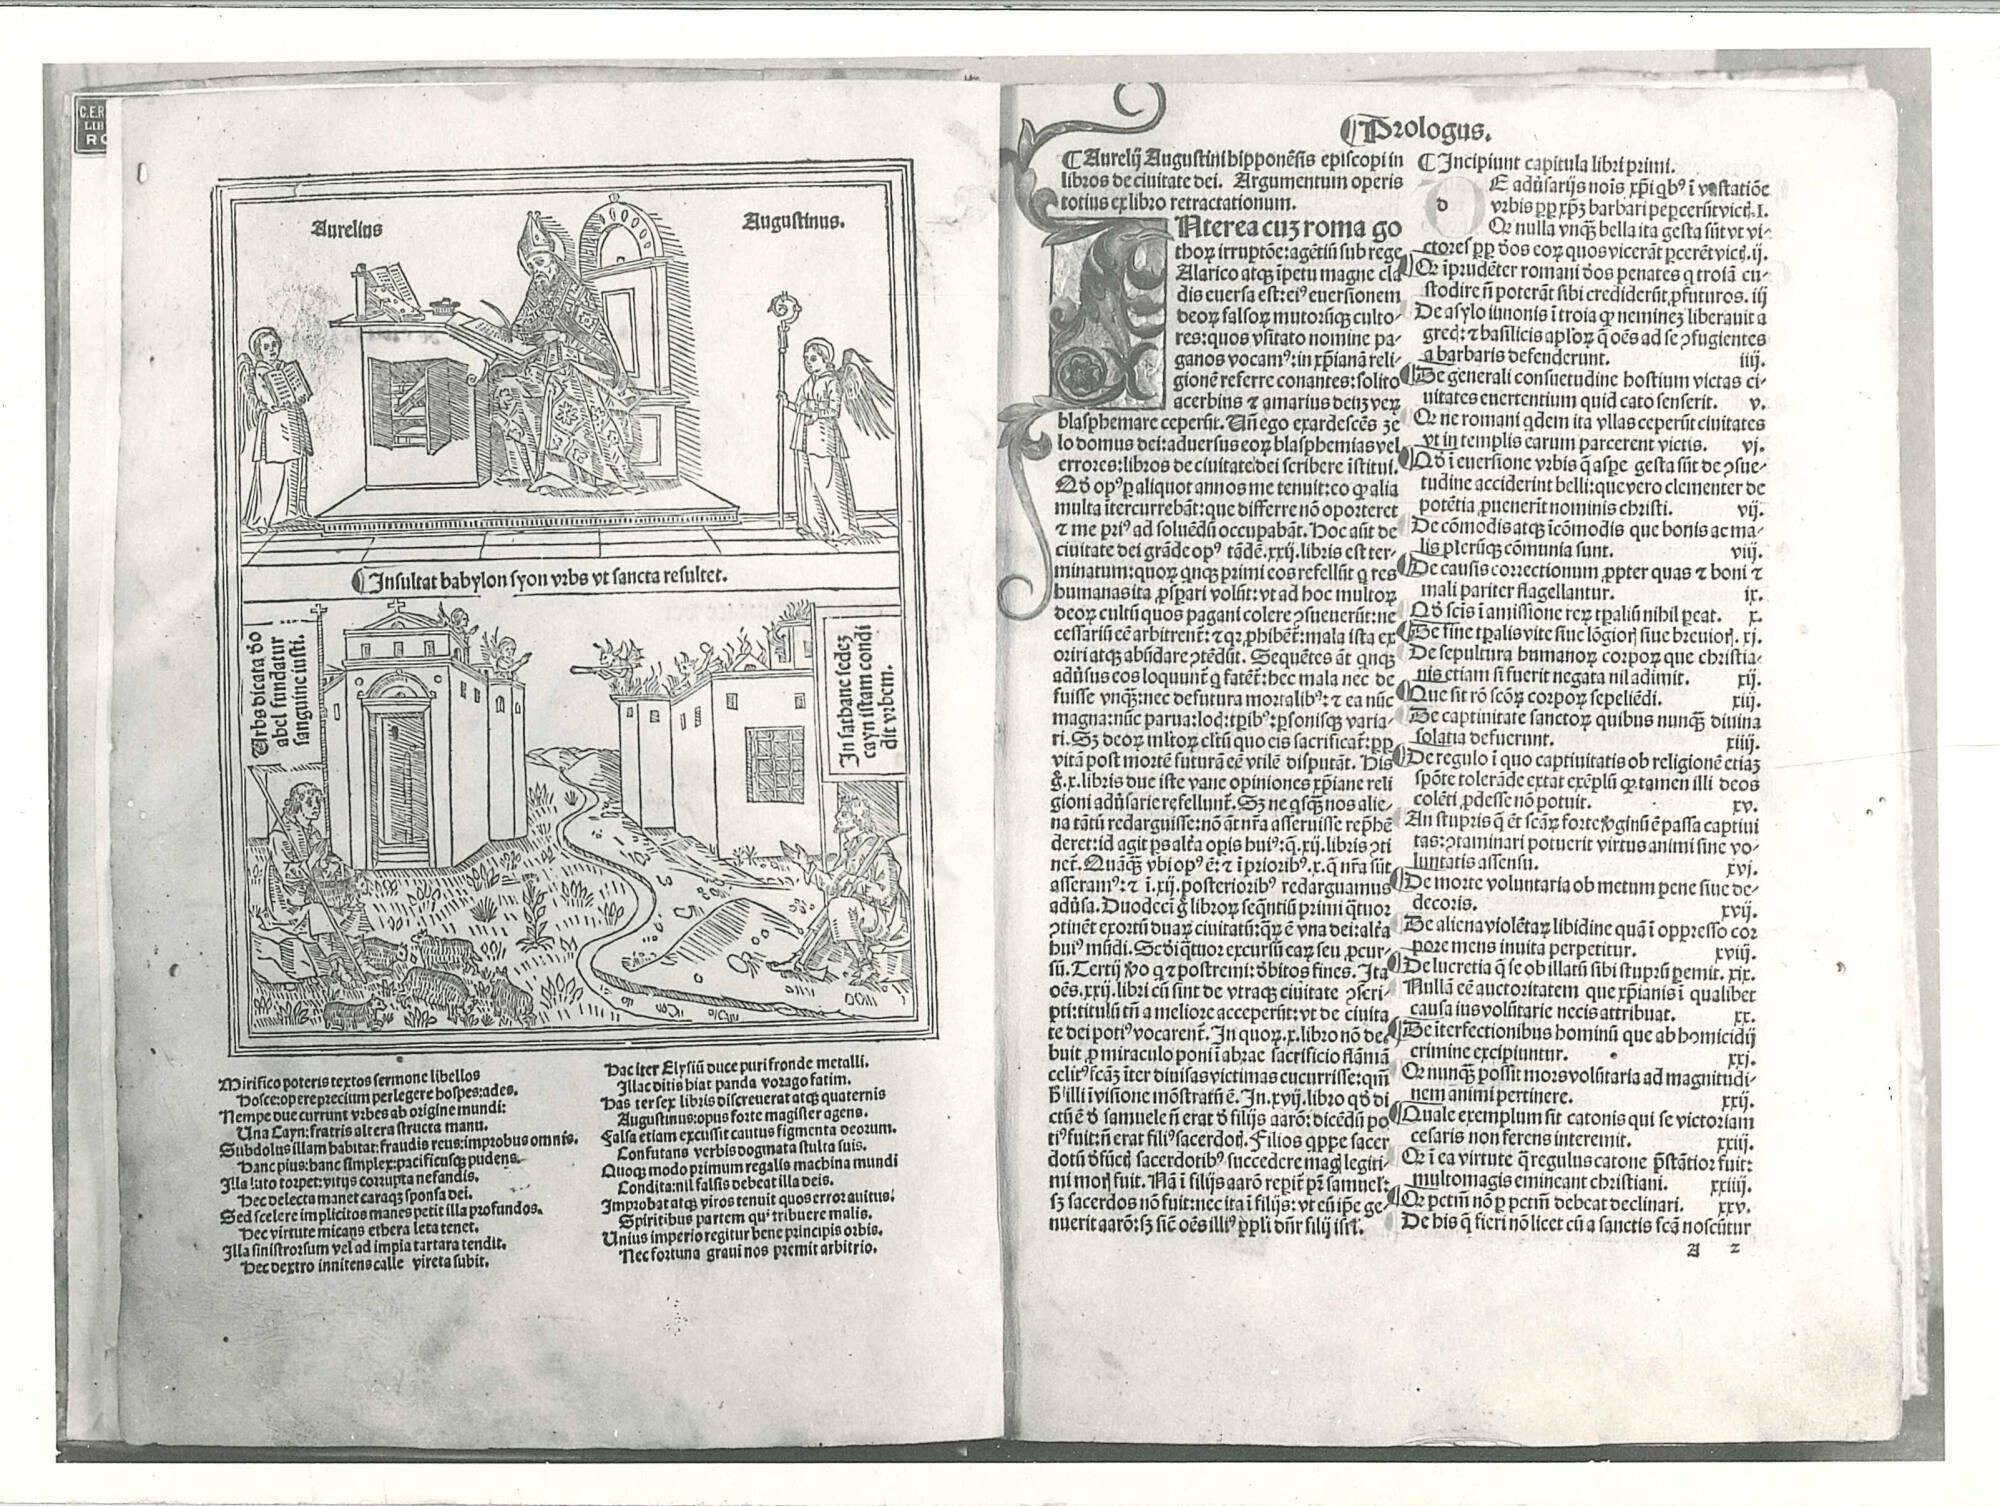 C.E.R
LIB
RO
Aurelius
Augustinus.
¶ Insultat babylon syon vrbs vt sancta resultet.
Urbs dicata deo
abel fundatur
sanguine iusti.
In sathane sedez
cayn istam condi
dit vrbem.
Mirifico poteris textos sermone libellos
Hosce: opereprecium perlegere hospes: ades.
Nempe due currunt vrbes ab origine mundi:
Una Cayn: fratris altera structa manu.
Subdolus illam habitat: fraudis reus: improbus omnis.
Hanc pius: hanc simplex: pacificusqꝫ pudens.
Illa luto torpet: vitijs corrupta nefandis.
Hec delecta manet caraqꝫ sponsa dei.
Sed scelere implicitos manes petit illa profundos.
Hec virtute micans ethera leta tenet.
Illa sinistrorsum vel ad impia tartara tendit.
Hec dextro innitens calle vireta subit.
Hac iter Elysiũ duce puri fronde metalli.
Illac ditis hiat panda vorago fatim.
Has ter sex libris discreuerat atqꝫ quaternis
Augustinus: opus forte magister agens.
Falsa etiam excussit cautus figmenta deorum.
Confutans verbis dogmata stulta suis.
Quoqꝫ modo primum regalis machina mundi
Condita: nil falsis debeat illa deis.
Improbat atqꝫ viros tenuit quos error auitus:
Spiritibus partem qui tribuere malis.
Unius imperio regitur bene principis orbis.
Nec fortuna graui nos premit arbitrio.
¶ Prologus.
¶ Aurelij Augustini hipponẽsis episcopi in
libros de ciuitate dei. Argumentum operis
totius ex libro retractationum.
Nterea cuz roma go
thoꝝ irruptõe: agẽtiũ sub rege
Alarico atqꝫ ĩpetu magne cla
dis euersa est: eiꝰ euersionem
deoꝝ falsoꝝ mutorũqꝫ culto-
res: quos vsitato nomine pa-
ganos vocamꝰ: in xp̃ianã reli-
gionẽ referre conantes: solito
acerbius ⁊ amarius deũ veꝝ
blasphemare ceperũt. Uñ ego exardescẽs ze
lo domus dei: aduersus eoꝝ blasphemias vel
errores: libros de ciuitate dei scribere ĩstitui.
Qd̃ opꝰ ꝑ aliquot annos me tenuit: eo ꝙ alia
multa ĩtercurrebãt: que differre nõ oporteret
⁊ me priꝰ ad soluẽdũ occupabãt. Hoc aũt de
ciuitate dei grãde opꝰ tãdẽ .xxij. libris est ter-
minatum: quoꝝ qnqꝫ primi eos refellũt q res
humanas ita ꝓsꝑari volũt: vt ad hoc multoꝝ
deoꝝ cultũ quos pagani colere ↄsueuerũt: ne
cessariũ eẽ arbitrent᷑: ⁊ qꝛ ꝓhibet᷑: mala ista ex
oriri atqꝫ abũdare ↄtẽdũt. Sequẽtes aũt qnqꝫ
aduersus eos loquunt᷑ q fatent᷑: hec mala nec de
fuisse vnqꝫ: nec defutura mortalibꝰ: ⁊ ea nũc
magna: nũc parua: locis: tꝑibꝰ: ꝑsonisqꝫ varia-
ri. Sꝫ deoꝝ mltoꝝ cltũ quo eis sacrificat᷑: ꝓpp
vitã post mortẽ futurã eẽ vtilẽ disputãt. His
g̊ .x. libris due iste vane opiniones xp̃iane reli
gioni aduersarie refellunt᷑. Sꝫ ne qsqꝫ nos alie-
na tãtũ redarguisse: nõ aũt nr̃a asseruisse rep̃hẽ
deret: id agit ps altera opis huiꝰ: q̃ .xij. libris ↄti
net᷑. Quãqꝫ vbi opꝰ ẽ: ⁊ ĩ prioribꝰ .x. q̃ nr̃a sũt
asseramꝰ: ⁊ ĩ .xij. posterioribꝰ redarguamus
aduersa. Duodeci g̊ libroꝝ seq̃ntiũ primi q̃tuor
ↄtinẽt exortũ duaꝝ ciuitatũ: q̃ꝝ ẽ vna dei: altẽa
huiꝰ mũdi. Scd̃i q̃tuor excursũ eaꝝ seu ꝓcur-
sũ. Tertij vo q ⁊ postremi: debitos fines. Ita
oẽs .xxij. libri cũ sint de vtraqꝫ ciuitate ↄscri-
pti: titulũ tñ a meliore acceperũt: vt de ciuita
te dei potiꝰ vocarent᷑. In quoꝝ .x. libro nõ de-
buit ꝓ miraculo poni ĩ abrae sacrificio flãmã
celitꝰ fcãꝫ ĩter diuisas victimas cucurrisse: qm̃
h̃ illi ĩ visione mõstratũ ẽ. In .xvij. libro qd̃ di
ctũ ẽ d̃ samuele ñ erat d̃ filijs aarõ: dicẽdũ po
tiꝰ fuit: ñ erat filiꝰ sacerdotis. Filios qppe sacer
dotũ d̃functis sacerdotibꝰ succedere magis legiti-
mi moris fuit. Nã ĩ filijs aarõ reperit᷑ pr̃ samuel᷑:
sꝫ sacerdos nõ fuit: nec ita ĩ filijs: vt eũ ip̃e ge-
nuerit aarõ: sꝫ sic̃ oẽs illiꝰ ppl̃i dñr filij isrl̃.
¶ Incipiunt capitula libri primi.
d
E aduersarijs nois xp̃i qbꝰ ĩ vastatiõe
vrbis ꝓp xp̃ꝫ barbari pepcerũt victis. I.
Qꝛ nulla vnqꝫ bella ita gesta sũt vt vi-
ctores ꝓp d̃os eoꝝ quos vicerãt ꝑcerẽt victis. ij.
Qꝛ ĩprudẽter romani d̃os penates q troiã cu-
stodire ñ poterãt sibi crediderũt ꝓfuturos. iij
De asylo iunonis ĩ troia ꝙ neminez liberauit a
grecis: ⁊ basilicis apl̃oꝝ q̃ oẽs ad se ↄfugientes
a barbaris defenderunt. iiij.
De generali consuetudine hostium victas ci-
uitates euertentium quid cato senserit. v.
Qꝛ ne romani qdem ita vllas ceperũt ciuitates
vt in templis earum parcerent victis. vj.
Qd̃ ĩ euersione vrbis q̃ aspe gesta sũt de ↄsue-
tudine acciderint belli: que vero clementer de
potẽtia ꝓuenerit nominis christi. vij.
De cõmodis atqꝫ ĩcõmodis que bonis ac ma-
lis plerũqꝫ cõmunia sunt. viij.
De causis correctionum ꝓpter quas ⁊ boni ⁊
mali pariter flagellantur. ix.
Qd̃ scis ĩ amissione reꝝ tꝑaliũ nihil ꝑeat. x.
De fine tꝑalis vite siue lõgioris siue breuioris. xj.
De sepultura humanoꝝ corpoꝝ que christia-
nis etiam si fuerit negata nil adimit. xij.
Que sit rõ scõꝝ corpoꝝ sepeliẽdi. xiij.
De captiuitate sanctoꝝ quibus nunqꝫ diuina
solatia defuerunt. xiiij.
De regulo ĩ quo captiuitatis ob religionẽ etiaz
spõte tolerãde extat exẽplũ ꝙ tamen illi deos
colẽti ꝓdesse nõ potuit. xv.
An stupris q̃ et̃ scãꝝ forte ṽginũ ẽ passa captiui
tas: ↄtaminari potuerit virtus animi sine vo-
luntatis assensu. xvj.
De morte voluntaria ob metum pene siue de-
decoris. xvij.
De aliena violẽtaꝝ libidine quã ĩ oppresso cor
pore mens inuita perpetitur. xviij.
De lucretia q̃ se ob illatũ sibi stuprũ ꝑemit. xix.
Nullã eẽ auctoritatem que xp̃ianis ĩ qualibet
causa ius volũtarie necis attribuat. xx.
De ĩterfectionibus hominũ que ab homicidij
crimine excipiuntur. xxj.
Qꝛ nunqꝫ possit mors volũtaria ad magnitudi-
nem animi pertinere. xxij.
Quale exemplum sit catonis qui se victoriam
cesaris non ferens interemit. xxiij.
Qꝛ ĩ ea virtute q̃ regulus catone p̃stãtior fuit:
multomagis emineant christiani. xxiiij.
Qꝛ pctm̃ nõ ꝑ pctm̃ debeat declinari. xxv.
De his q̃ fieri nõ licet cũ a sanctis fcã noscũtur
A 2